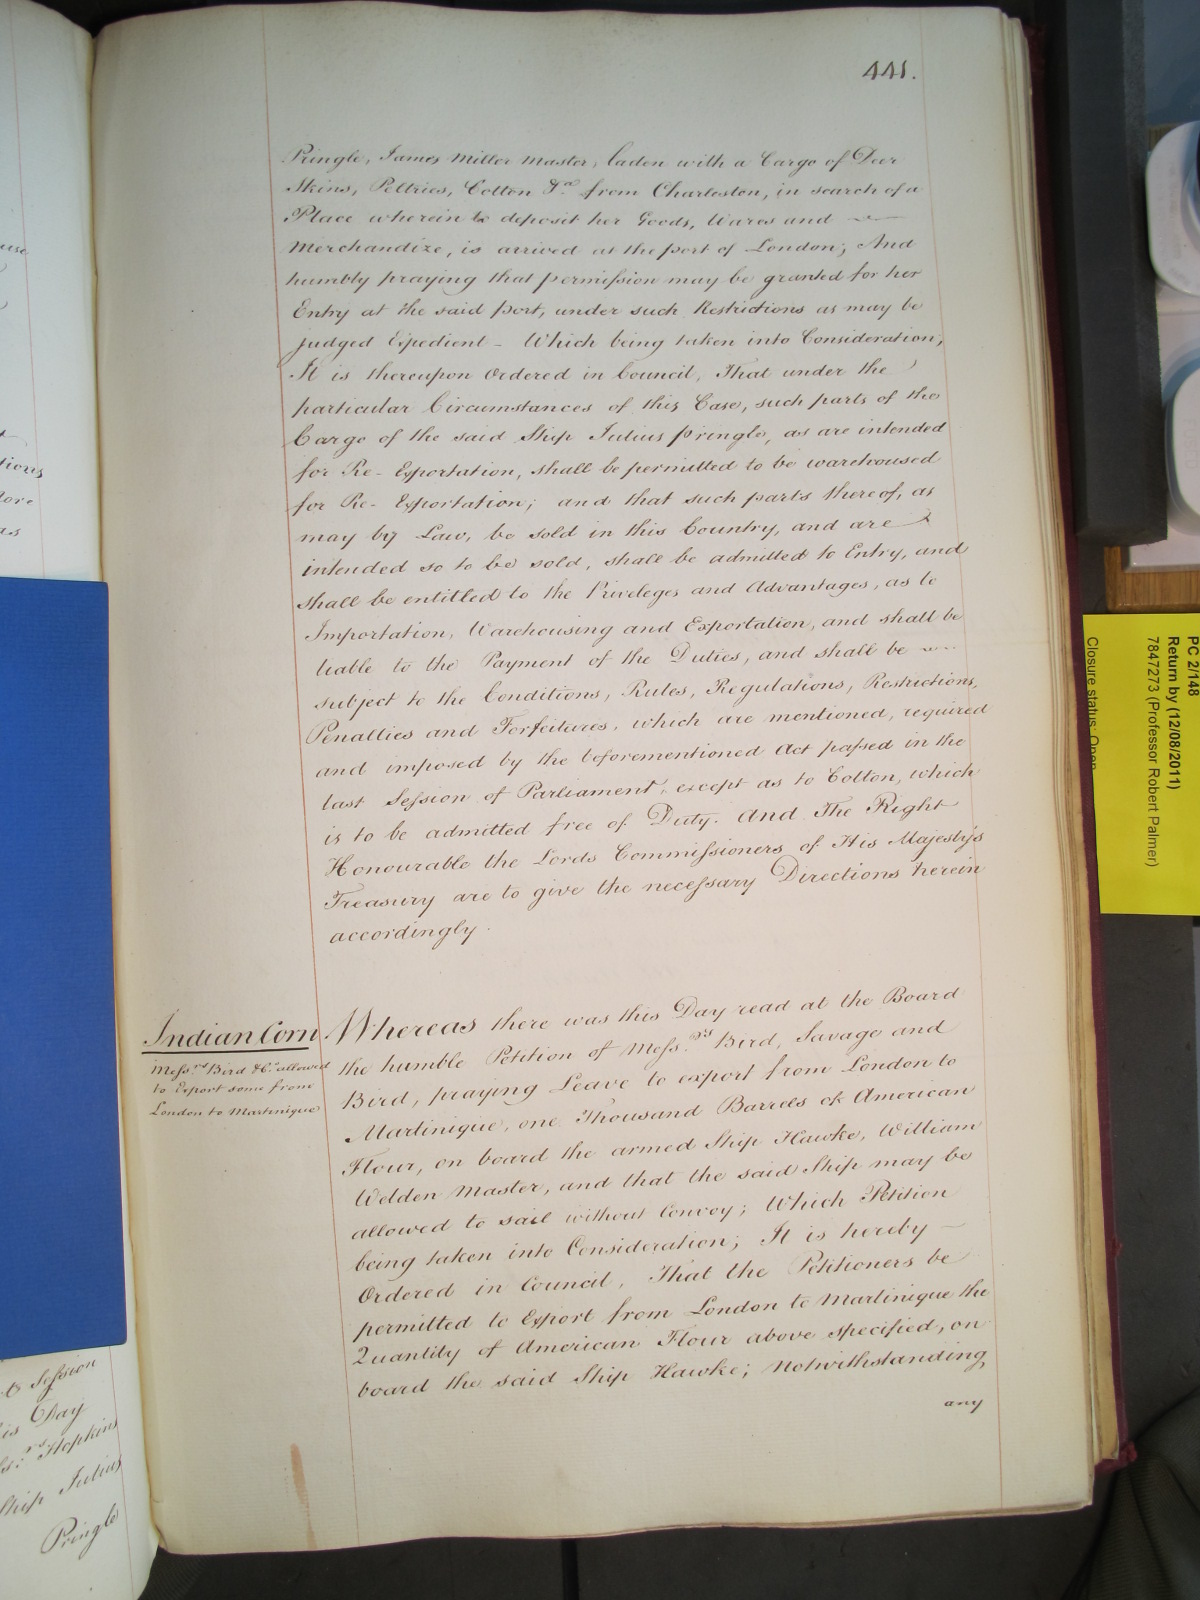 441.
Pringle, James Miller Master, laden with a Cargo of Deer
Skins, Peltries, Cotton &ca from Charleston, in search of a
Place wherein to deposit her Goods, Wares and
Merchandize, is arrived at the port of London; And
humbly praying that permission may be granted for her
Entry at the said port, under such Restrictions as may be
judged Expedient - Which being taken into Consideration,
It is thereupon Ordered in Council, That under the
particular Circumstances of this Case, such parts of the
Cargo of the said Ship Julius pringle, as are intended
for Re-Exportation, shall be permitted to be warehoused
for Re-Exportation; and that such parts thereof, as
may by Law, be sold in this Country, and are
intended so to be sold, shall be admitted to Entry, and
shall be entitled to the Priveleges and Advantages, as to
Importation, Warehousing and Exportation, and shall be
liable to the Payment of the Duties, and shall be
subject to the Conditions, Rules, Regulations, Restrictions,
Penalties and Forfeitures, which are mentioned, required
and imposed by the beforementioned Act passed in the
last Session of Parliament, except as to Cotton, which
is to be admitted free of Duty. And The Right
Honourable the Lords Commissioners of His Majesty's
Treasury are to give the necessary Directions herein
accordingly.
Indian Corn
Messrs Bird &Co allowed
to Export some from
London to Martinique
Whereas there was this Day read at the Board
the humble Petition of Messrs Bird, Savage and
Bird, praying Leave to export from London to
Martinique, one Thousand Barrels of American
Flour, on board the armed Ship Hawke, William
Welden Master, and that the said Ship may be
allowed to sail without Convoy; Which Petition
being taken into Consideration; It is hereby
Ordered in Council, That the Petitioners be
permitted to Export from London to Martinique the
Quantity of American Flour above specified, on
board the said Ship Hawke; notwithstanding
any
Session
is Day
Hopkins
Ship Julius
Pringle
PC 2/148
Return by (12/08/2011)
7847273 (Professor Robert Palmer)
Closure status: Open